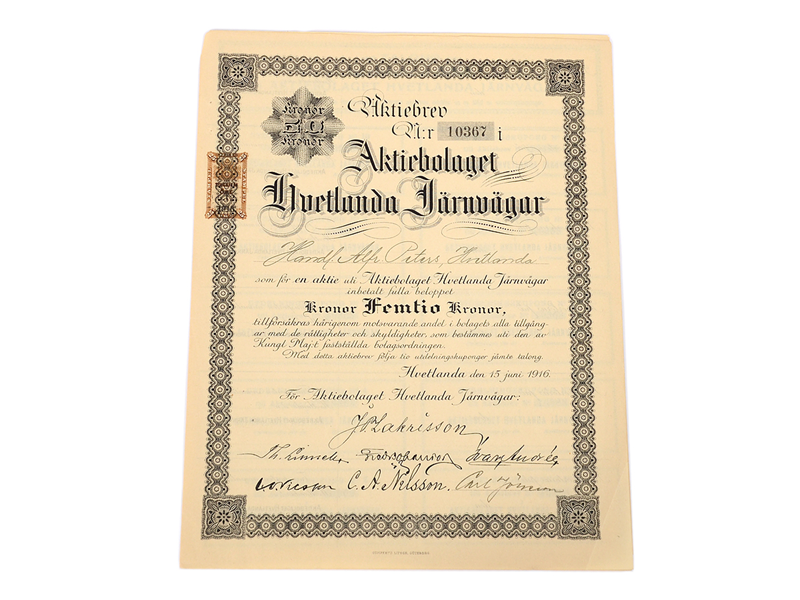 Kronor
50
Kronor
Aktiebrev
N:r 10367 i
Aktiebolaget
Hvetlanda Järnvägar
Handl. Alfr. Peters, Hvetlanda
som för en aktie uti Aktiebolaget Hvetlanda Järnvägar
inbetalt fulla beloppet
Kronor Femtio Kronor,
tillförsäkras härigenom motsvarande andel i bolagets alla tillgång-
ar med de rättigheter och skyldigheter, som bestämmes uti den av
Kungl. Maj:t fastställda bolagsordningen.
Med detta aktiebrev följa tio utdelningskuponger jämte talong.
Hvetlanda den 15 juni 1916.
För Aktiebolaget Hvetlanda Järnvägar:
C. A. Nilsson.
Carl